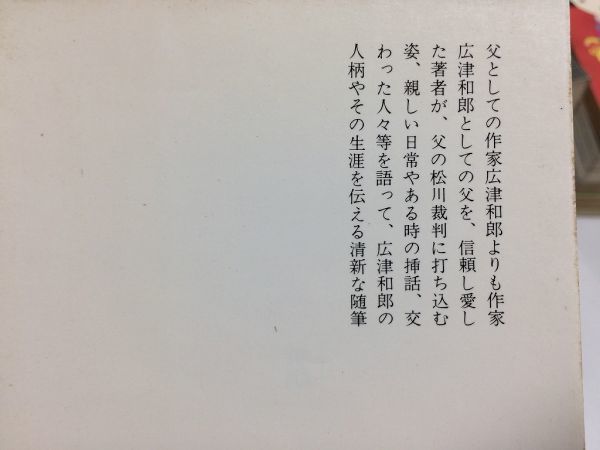 父としての作家広津和郎よりも作家
広津和郎としての父を、信頼し愛し
た著者が、父の松川裁判に打ち込む
姿、親しい日常やある時の挿話、交
わった人々等を語って、広津和郎の
人柄やその生涯を伝える清新な随筆